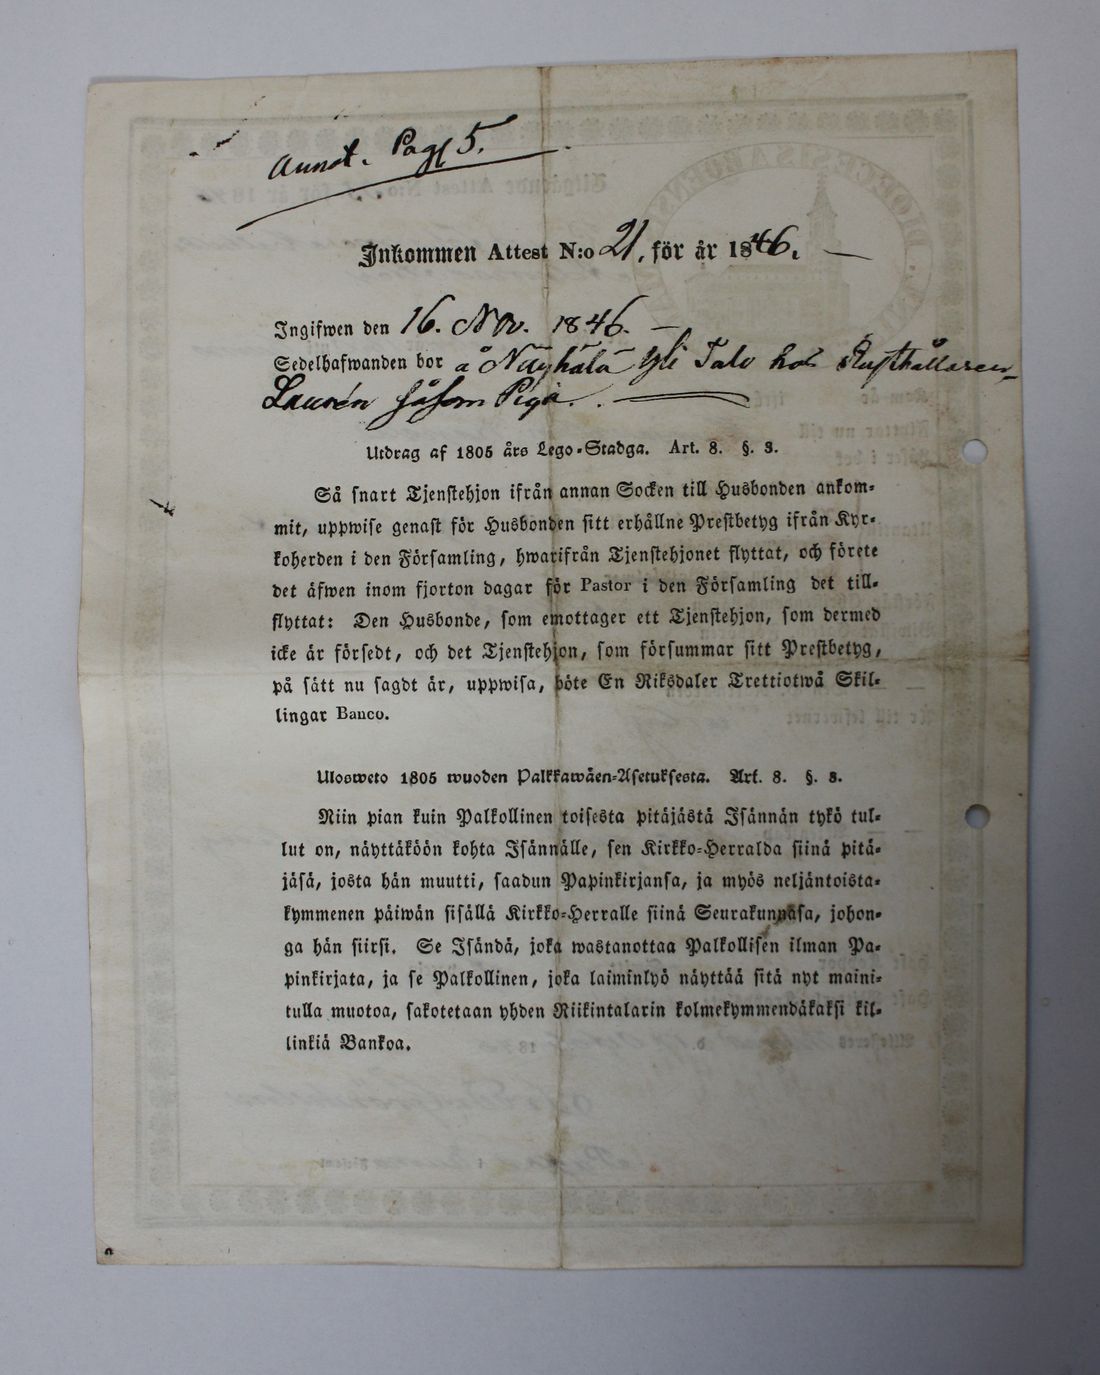 Annot. Pag 5.
Inkommen Attest N:o 21, för år 1846.
Ingifwen den 16. Nov. 1846.
Sedelhafwanden bor å Näyhälä Yli Talo hos Rusthållaren
Laurén såsom Piga.
Utdrag af 1805 års Lego-Stadga. Art. 8. §. 3.
Så snart Tjenstehjon ifrån annan Socken till Husbonden ankom-
mit, uppwise genast för Husbonden sitt erhållne Prestbetyg ifrån Kyr-
koherden i den Församling, hwarifrån Tjenstehjonet flyttat, och förete
det äfwen inom fjorton dagar för Pastor i den Församling det till-
flyttat: Den Husbonde, som emottager ett Tjenstehjon, som dermed
icke är försedt, och det Tjenstehjon, som försummar sitt Prestbetyg,
på sätt nu sagdt är, uppwisa, böte En Riksdaler Trettiotwå Skil-
lingar Banco.
Ulosweto 1805 wuoden Palkkawäen-Asetuksesta. Art. 8. §. 3.
Niin pian kuin Palkollinen toisesta pitäjästä Isännän tykö tul-
lut on, näyttäköön kohta Isännälle, sen Kirkko-Herralda siinä pitä-
jäsä, josta hän muutti, saadun Papinkirjansa, ja myös neljäntoista-
kymmenen päiwän sisällä Kirkko-Herralle siinä Seurakunnasa, johon-
ga hän siirsi. Se Isändä, joka wastanottaa Palkollisen ilman Pa-
pinkirjata, ja se Palkollinen, joka laiminlyö näyttää sitä nyt maini-
tulla muotoa, sakotetaan yhden Riikintalarin kolmekymmendäkaksi kil-
linkiä Bankoa.